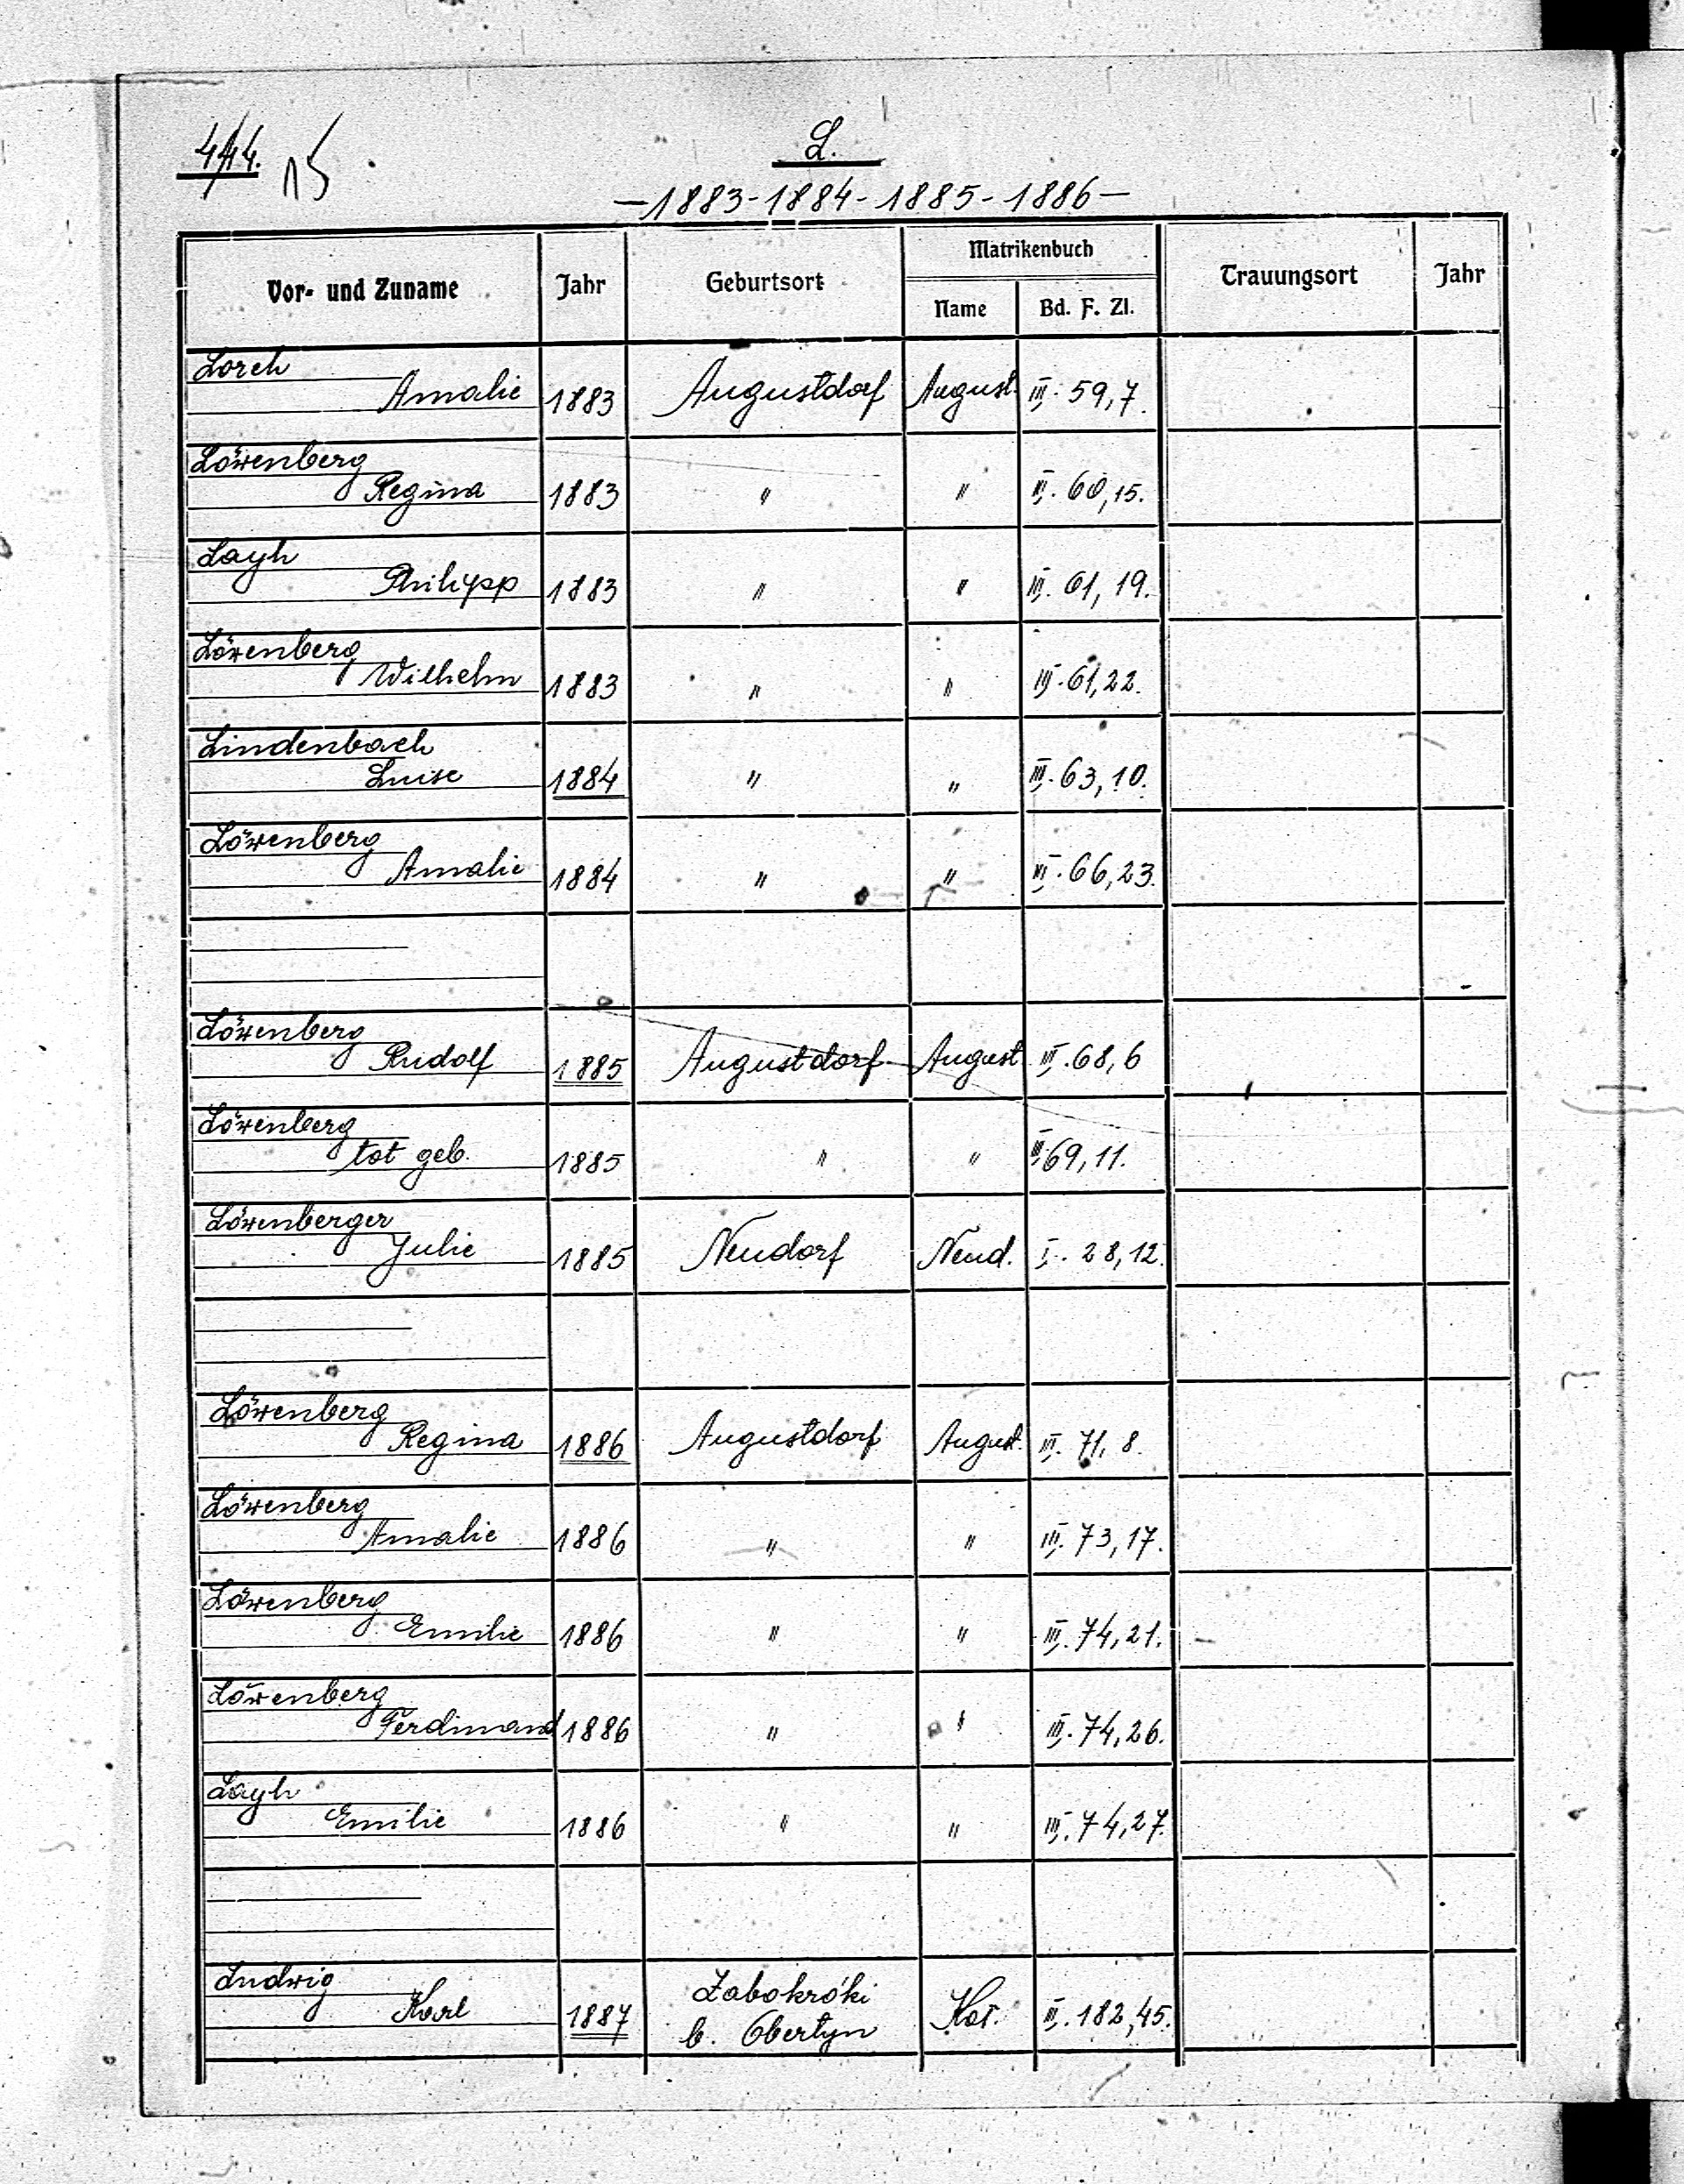 444. 15
L.
—1883-1884-1885-1886—
Matrikenbuch
Vor- und Zuname Jahr Geburtsort Trauungsort Jahr
Name Bd. F. Zl.
Lorch
Amalie 1883 Augustdorf August. III. 59,7.
Löwenberg
Regina 1883 " " III. 60,15.
Layh
Philipp 1883 " " III. 61, 19.
Löwenberg
Wilhelm 1883 " " III. 61,22.
Lindenbach
Luise 1884 " " III. 63,10.
Löwenberg
Amalie 1884 " " III. 66,23.
Löwenberg
Rudolf 1885 Augustdorf August III. 68,6
Löwenberg
tot geb. 1885 " " III 69,11.
Löwenberger
Julie 1885 Neudorf Neud. I. 28,12.
Löwenberg
Regina 1886 Augustdorf August. III. 71, 8.
Löwenberg
Amalie 1886 " " III. 73,17.
Löwenberg
Emilie 1886 " " III. 74,21.
Löwenberg
Ferdinand 1886 " " III. 74,26.
Layh
Emilie 1886 " " III. 74,27.
Ludwig Żabokróki
Karl 1887 b. Obertyn II. 182,45.